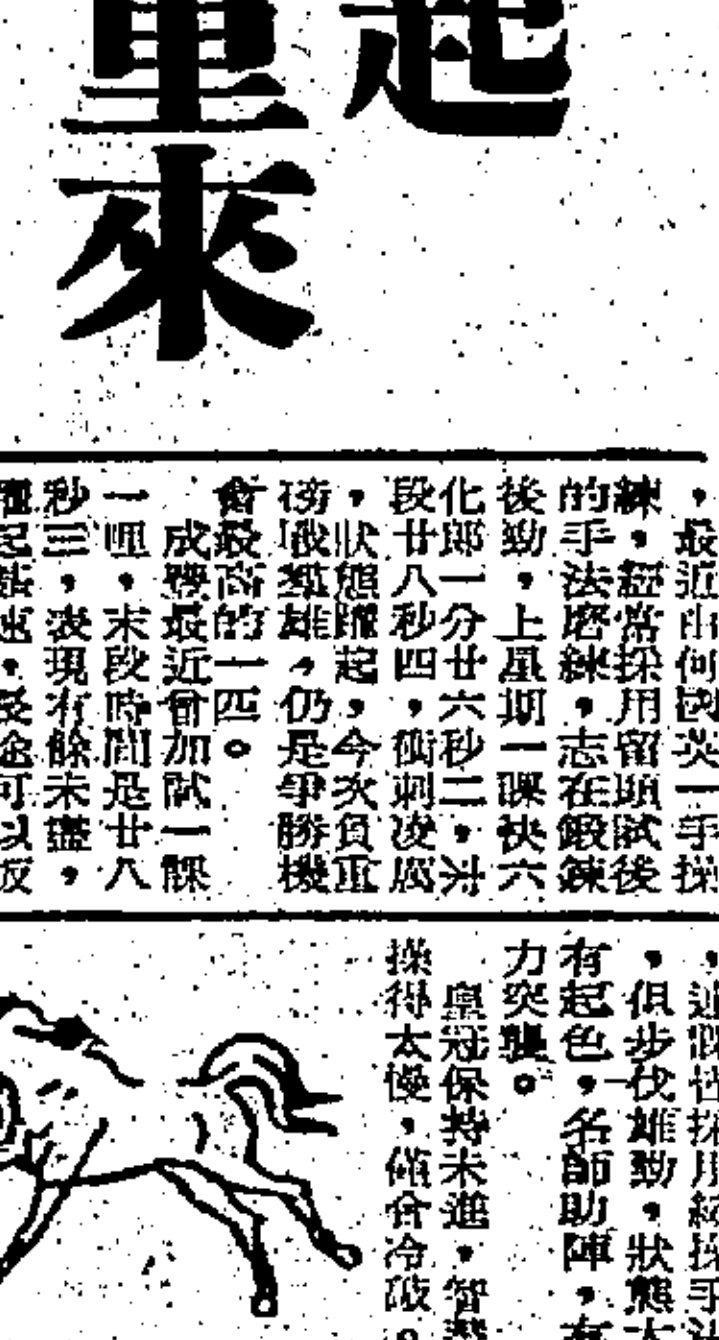 起
重來
，最近由何國英一手操
練，經常採用留頭試後
的手法磨練，志在鍛鍊
後勁，上星期一課快六
化郎一分廿六秒二，末
段廿八秒四，衝刺凌厲
，狀態躍起，今次負重
磅戰羣雄，仍是爭勝機
會最高的一匹。
成勝最近曾加試一課
一哩，末段時間是廿八
秒三，表現有餘未盡，
起 速，途可以
，採用 操手法
，但步伐雄勁，狀態大
有起色，名師助陣，有
力突襲。
皇冠保持未進，智
操得太慢，僅合冷敲。